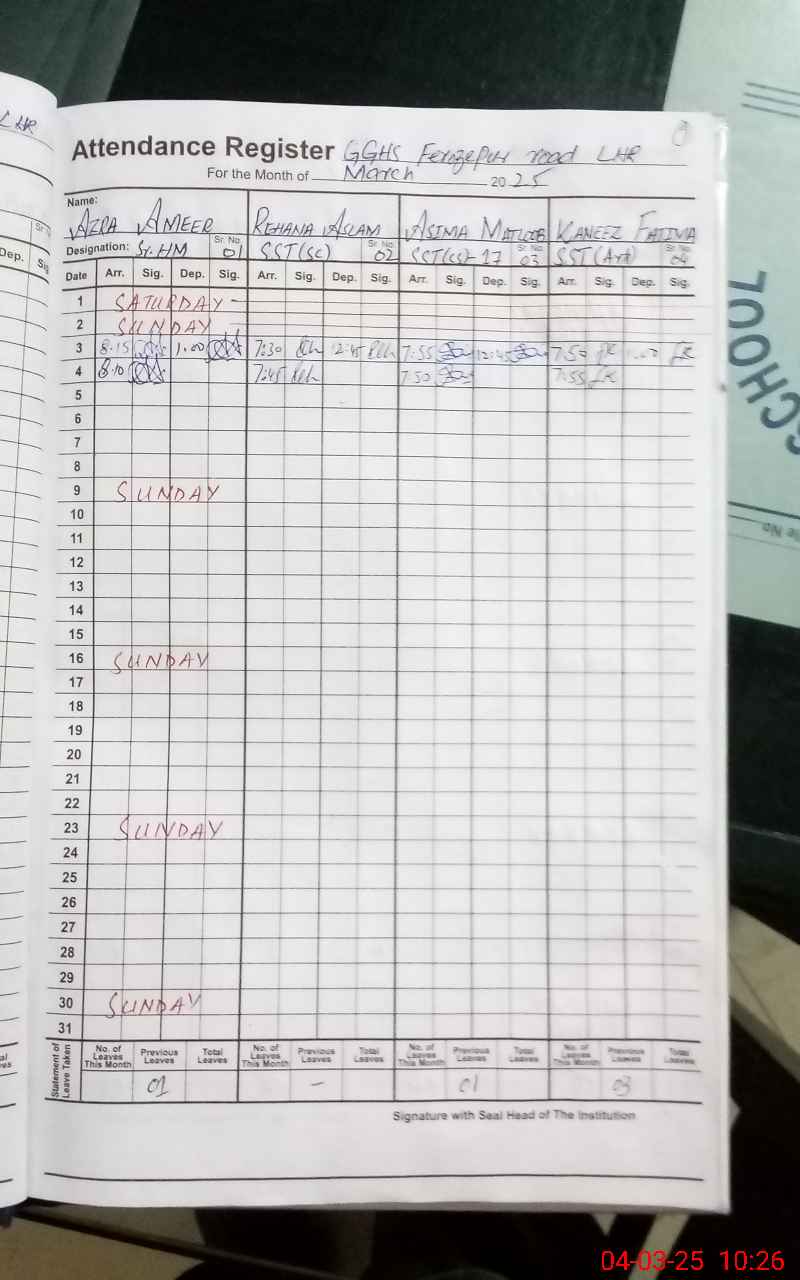 LHR
Attendance Register GGHS Ferozepur road LHR
For the Month of March 2025
Name: AZRA AMEER REHANA ASLAM ASIMA MATLOOB KANEEZ FATIMA
Designation: Sr. HM Sr. No. 01 SST(SC) Sr. No. 02 SST(CS)-17 Sr. No. 03 SST(Art) Sr. No. 04
Date Arr. Sig. Dep. Sig. Arr. Sig. Dep. Sig. Arr. Sig. Dep. Sig. Arr. Sig. Dep. Sig.
1 SATURDAY -
2 SUNDAY
3 8.15 1.00 7:30 12:45 7:55 12:45 7:50 1:00
4 8.10 7:45 7:50 7:55
5
6
7
8
9 SUNDAY
10
11
12
13
14
15
16 SUNDAY
17
18
19
20
21
22
23 SUNDAY
24
25
26
27
28
29
30 SUNDAY
31
Statement of Leave Taken
No. of Leaves This Month Previous Leaves Total Leaves No. of Leaves This Month Previous Leaves Total Leaves No. of Leaves This Month Previous Leaves Total Leaves No. of Leaves This Month Previous Leaves Total Leaves
01 - 01 03
Signature with Seal Head of The Institution
Dep.
SCHOOL
04-03-25 10:26